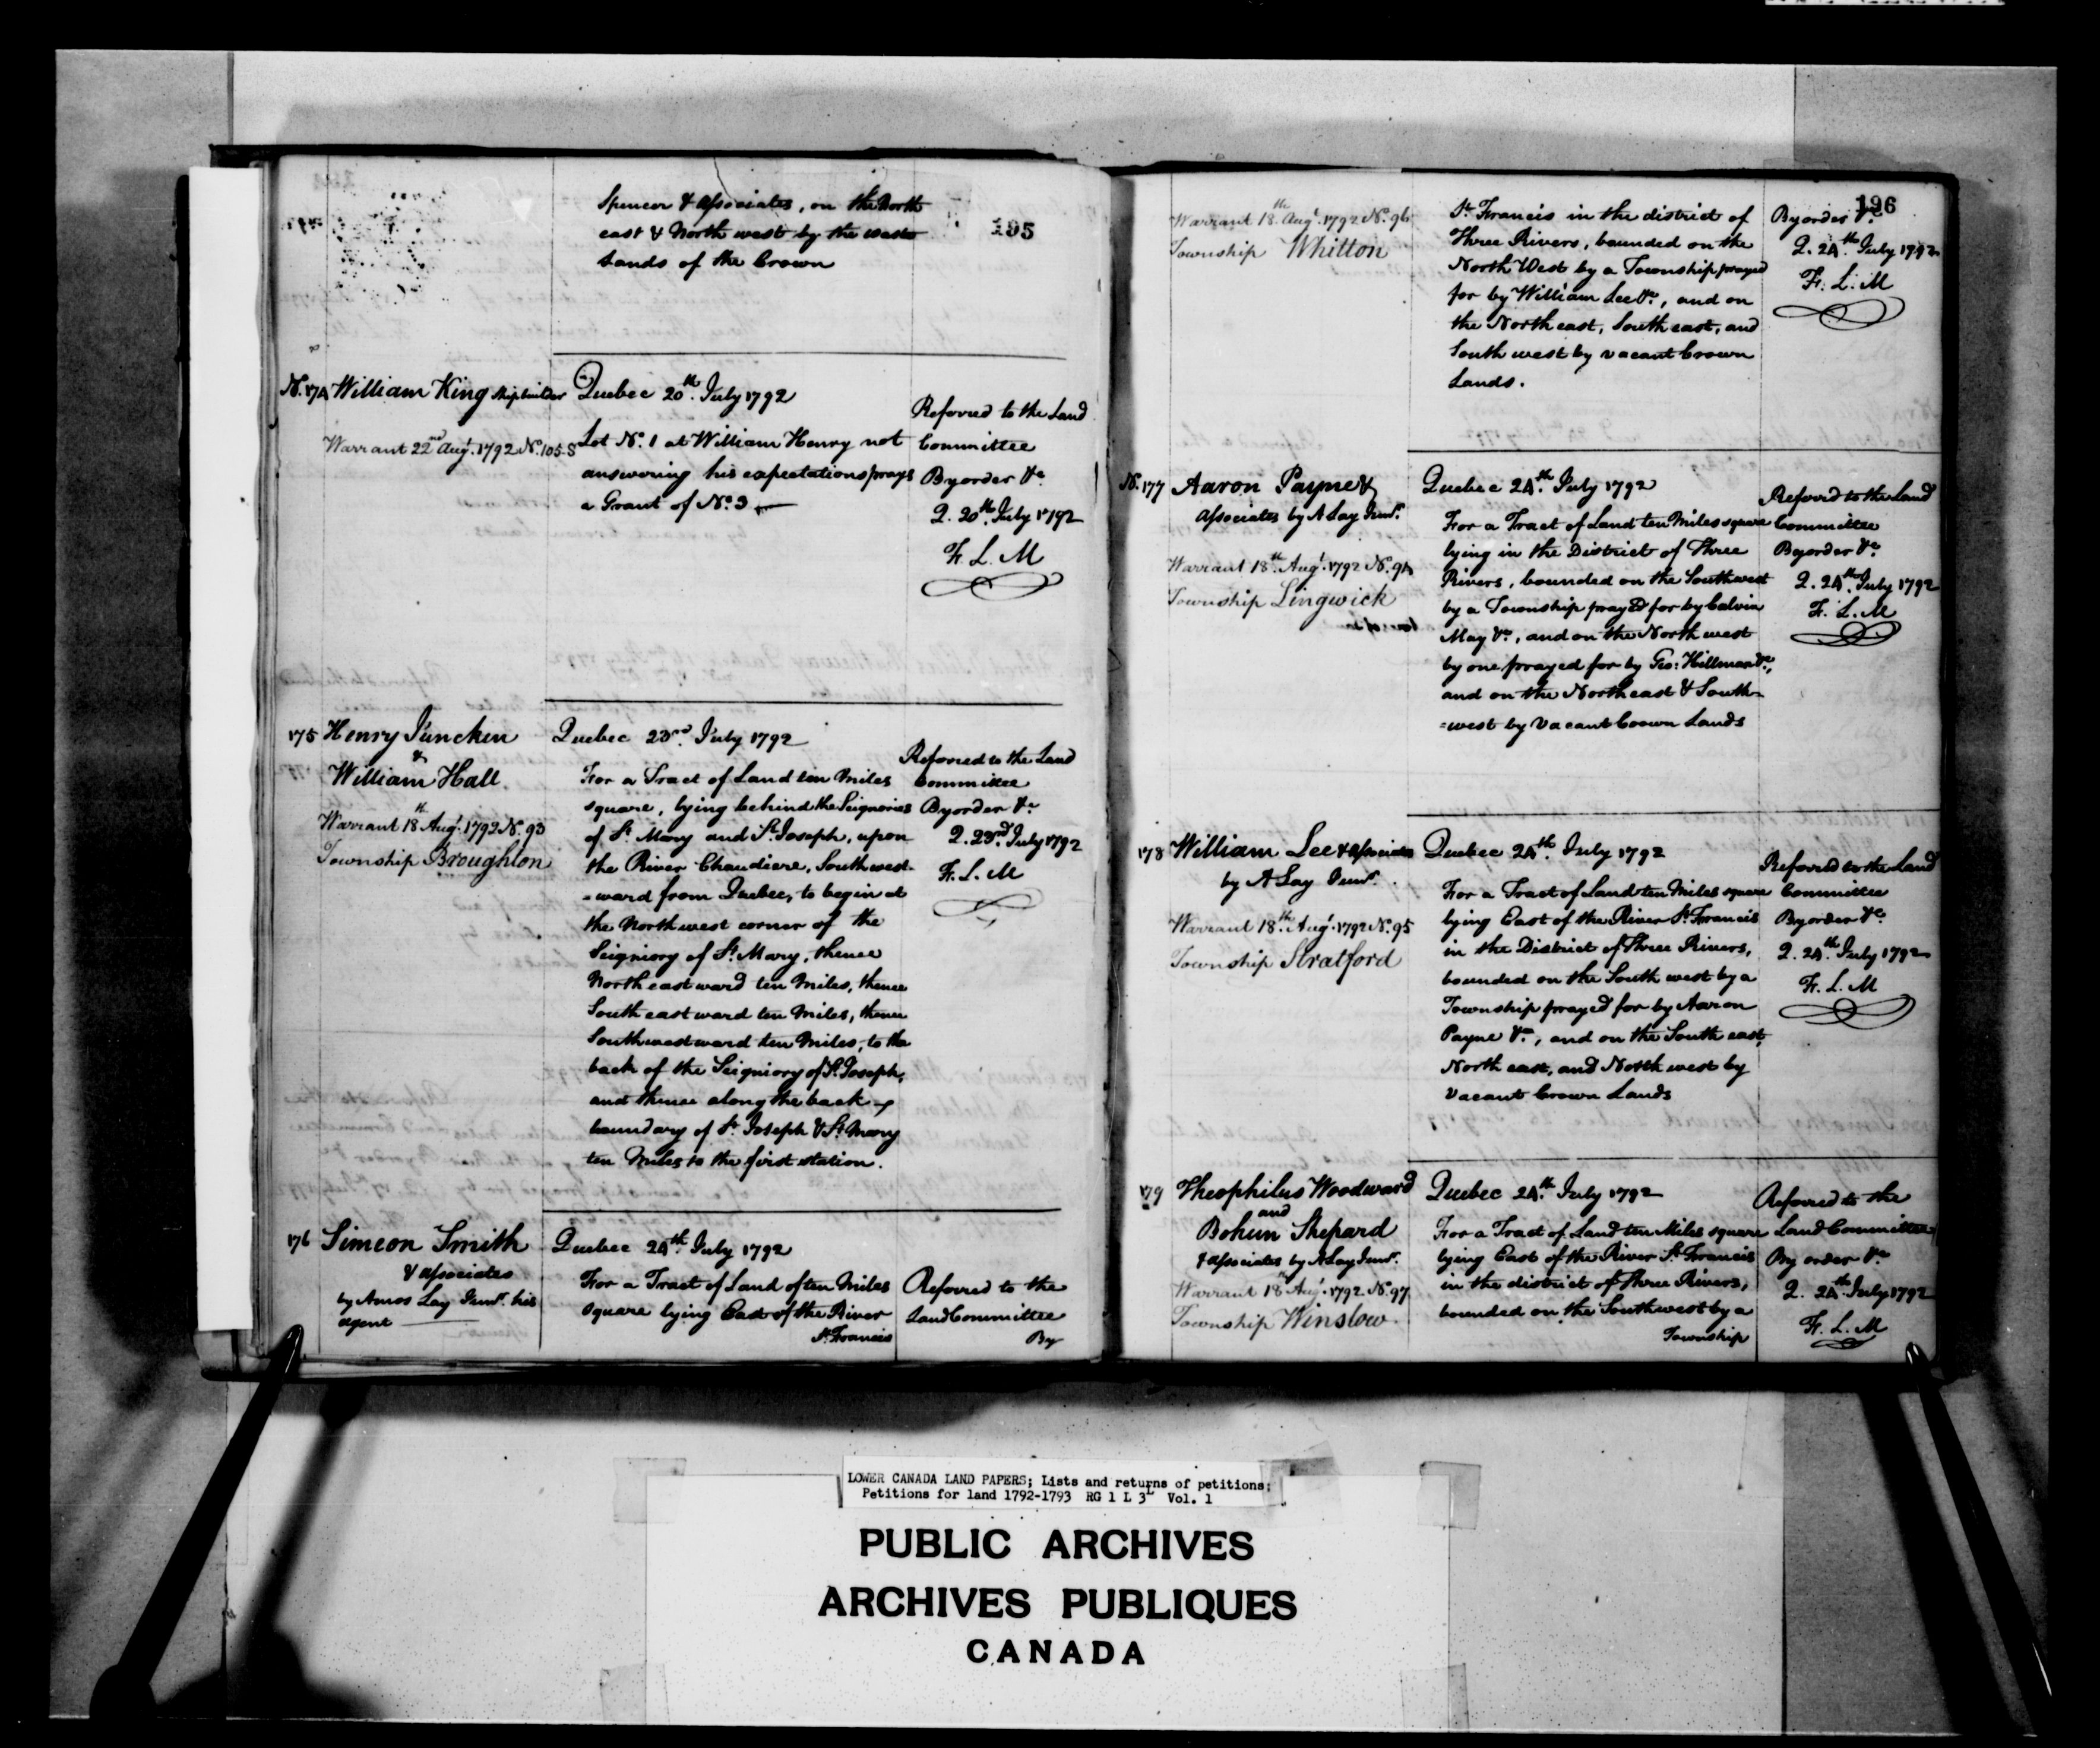 195
Spencer & Associates, on the North
east & North west by the waste
Lands of the Crown
No. 174 William King Shipbuilder
Warrant 22nd Augt. 1792 No. 105 S
Quebec 20th July 1792
Lot No. 1 at William Henry not
answering his expectations prays
a Grant of No. 3
Referred to the Land
Committee
By order &c.
Q. 20th July 1792
F. L. M
175 Henry Juncken
&
William Hall
Warrant 18th Augt. 1792 No. 93
Township Broughton
Quebec 23rd July 1792
For a Tract of Land ten Miles
square, lying behind the Seigniories
of St. Mary and St. Joseph, upon
the River Chaudiere, Southwest-
=ward from Quebec, to begin at
the North west corner of the
Seigniory of St. Mary, thence
North east ward ten Miles, thence
South east ward ten Miles, thence
South west ward ten Miles, to the
back of the Seigniory of St. Joseph,
and thence along the back
boundary of St. Joseph & St. Mary
ten Miles to the first station.
Referred to the Land
Committee
By order &c
Q. 23rd July 1792
F. L. M
176 Simeon Smith
& Associates
by Amos Lay Junr. his
agent
Quebec 24th July 1792
For a Tract of Land of ten Miles
square lying East of the River
St. Francis
Referred to the
Land Committee
By
196
Warrant 18th Augt. 1792 No. 96
Township Whitton
St. Francis in the district of
Three Rivers, bounded on the
North West by a Township prayed
for by William Lee &c., and on
the North east, South east, and
South west by vacant Crown
Lands.
By order &c
Q. 24th July 1792
F. L. M
No. 177 Aaron Payne &
Associates by A Lay Junr.
Warrant 18th Augt. 1792 No. 94
Township Lingwick
Quebec 24th July 1792
For a Tract of Land ten Miles square
lying in the District of Three
Rivers, bounded on the Southwest
by a Township pray'd for by Calvin
May &c., and on the North west
by one prayed for by Geo: Hillman &c.,
and on the North east & South-
=west by Vacant Crown Lands
Referred to the Land
Committee
By order &c.
Q. 24th July 1792
F. L. M
178 William Lee & Associates
by A Lay Junr.
Warrant 18th Augt. 1792 No. 95
Township Stratford
Quebec 24th July 1792
For a Tract of Land ten Miles square
lying East of the River St. Francis
in the District of Three Rivers,
bounded on the South west by a
Township prayed for by Aaron
Payne &c., and on the South east,
North east, and North west by
vacant Crown Lands
Referred to the Land
Committee
By order &c.
Q. 24th July 1792
F. L. M
179 Theophilus Woodward
and
Bohun Shepard
& Associates by A Lay Junr.
Warrant 18th Augt. 1792 No. 97
Township Winslow.
Quebec 24th July 1792
For a Tract of Land ten Miles square
lying East of the River St. Francis
in the district of Three Rivers,
bounded on the Southwest by a
Township
Referred to the
Land Committee
By order &c
Q. 24th July 1792
F. L. M
LOWER CANADA LAND PAPERS; Lists and returns of petitions;
Petitions for land 1792-1793 RG 1 L 3L Vol. 1
PUBLIC ARCHIVES
ARCHIVES PUBLIQUES
CANADA